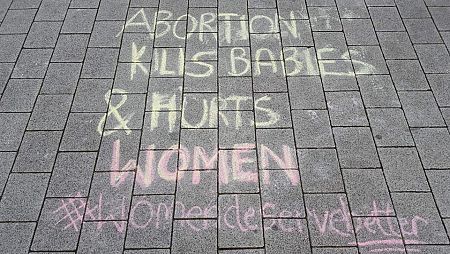 ABORTION
KILLS BABIES
& HURTS
WOMEN
#Womendeservebetter